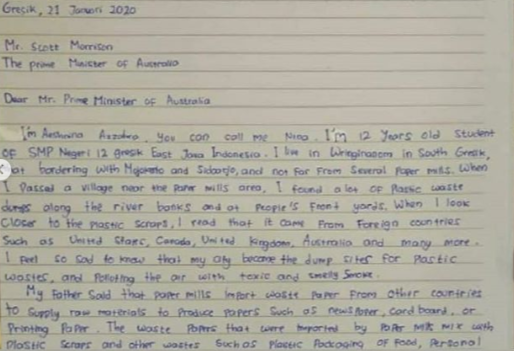 Gresik, 21 Januari 2020
Mr. Scott Morrison
The prime Minister of Australia
Dear Mr. Prime Minister of Australia
I'm Aeshnina Azzahra, you can call me Nina. I'm 12 years old student
of SMP Negeri 12 Gresik East Java Indonesia. I live in Wringinanom in South Gresik,
at bordering with Mojokerto and Sidoarjo, and not far from several paper mills. When
I Passed a village near the Paper mills area, I found a lot of Plastic waste
dumps along the river banks and at People's Front yards. When I look
closer to the plastic scraps, I read that it came From Foreign countries
Such as United States, Canada, United Kingdom, Australia and many more.
I Feel so Sad to know that my city become the dump sites for Plastic
wastes, and Polluting the air with toxic and smelly Smoke.
My Father Said that paper mills import waste Paper From other countries
to supply raw materials to Produce papers Such as newspaper, cardboard, or
Printing Paper. The waste Papers that were imported by Paper mills mix with
Plastic Scraps and other wastes Such as Plastic Packaging of Food, Personal